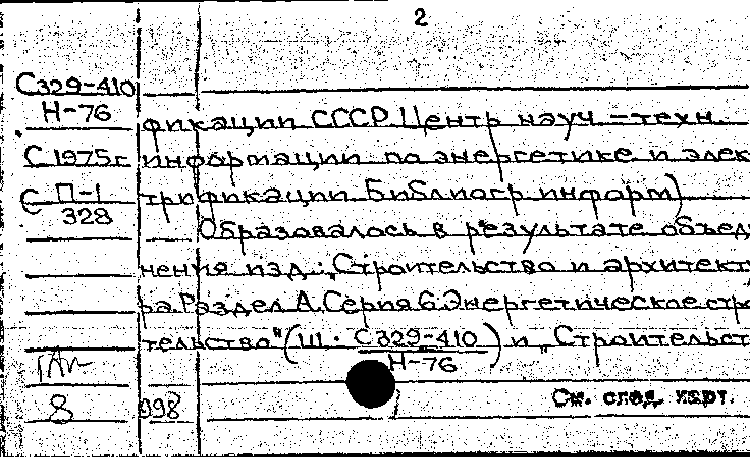 2
С329-410
Н-76
С 1975г.
С П-1
328
фикации СССР. Центр науч-техн.
информации по энергетике и элек
трификации. Библиогр. информ)
Образовалось в результате объеди
нения изд.: "Строительство и архитект
ра. Раздел А. Серия 6. Энергетическое стр
тельство" (Ш. С329-410
Н-76) и "Строительст
8
998
См. след. карт.